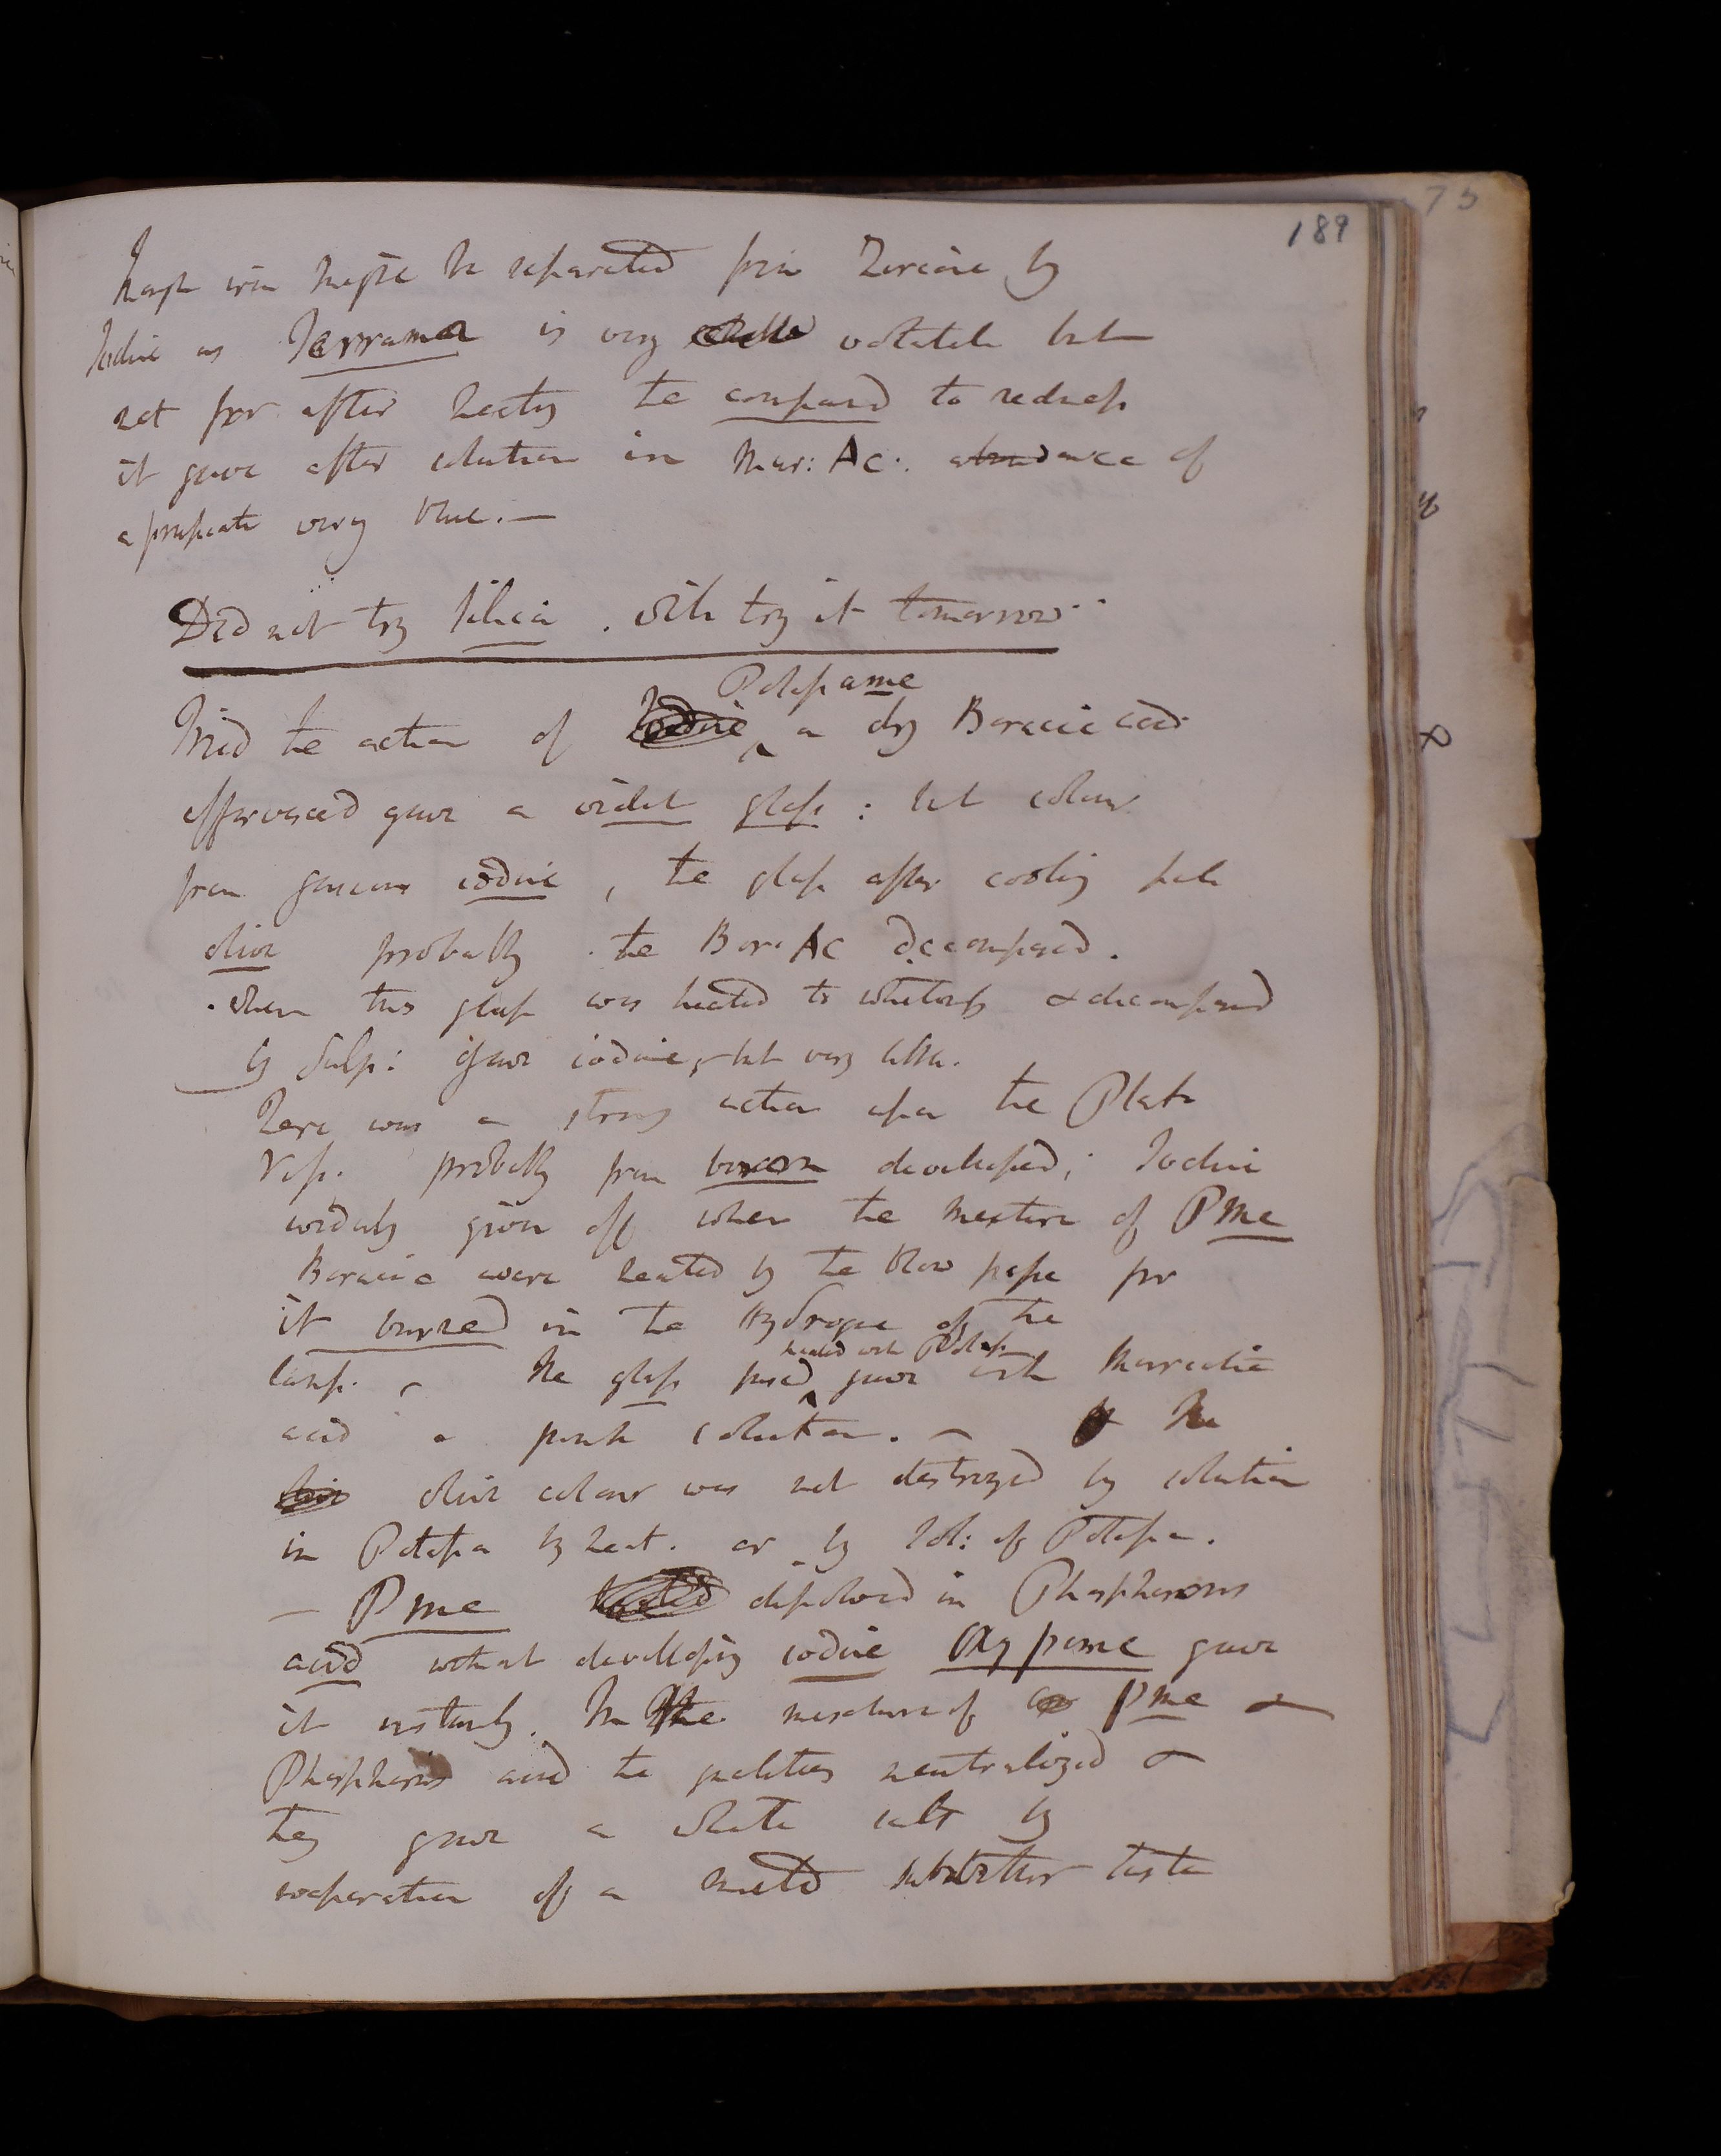 189
Thought iron might be separated from Zircone by
Iodine as Ferrama is very volatile but
not for after heating the compound to redness
it gave after solution in Mur: Ac: abundance of
a precipitate very blue. —
Did not try Silica. will try it tomorrow
Potassame
Tried the action of Iodine ^ on dry Boracic acid
effervesced gave a violet glass : but colour
from gaseous iodine, the glass after cooling pale
olive probably the Bor: Ac decomposed.
When this glass was heated to whiteness & decomposed
by Sulp: gave iodine, but very little.
There was a strong action upon the Plat:
Vess. probably from boron developed; Iodine
evidently given off when the mixture of Pme
Boracic were heated by the blow pipe for
it burned in the Hydrogene of the
heated with Potash
lamp. – The glass fused ^ gave with Muriatic
acid a pink solution. – The
olive colour was not destroyed by solution
in Potassa by heat. or by Sol: of Potassa.
— Pme heated dissolved in Phosphorous
acid without developing iodine Oxy pame gave
it instantly. In the mixture of Pme &
Phosphorous acid the qualities neutralized &
they gave a white salt by
evaporation of a subbitter taste